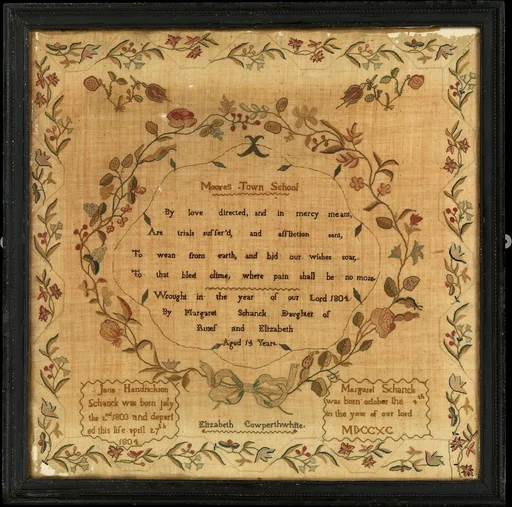 Moores Town School
By love directed, and in mercy meant,
Are trials suffer'd, and affliction sent,
To wean from earth, and bid our wishes soar,
To that blest clime, where pain shall be no more.
Wrought in the year of our Lord 1804
By Margaret Schanck Daughter of
Rulef and Elizabeth
Aged 14 Years.
Jane Hendrickson
Schanck was born july
the 2nd 1803 and depart
ed this life april 27th
1804
Elizabeth Cowperthwaite.
Margaret Schanck
was born october the 4th
in the year of our lord
MDCCXC